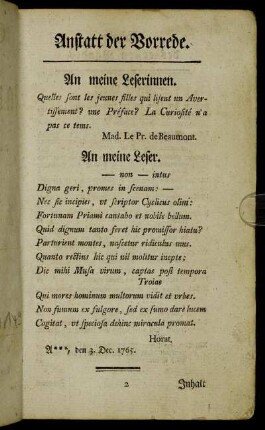 Anstatt der Vorrede.
An meine Leserinnen.
Quelles ſont les jeunes filles qui liſent un Aver-
tiſſement? une Préface? La Curioſité n'a
pas ce tems.
Mad. Le Pr. de Beaumont.
An meine Leser.
— non — intus
Digna geri, promes in ſcenam: —
Nec ſic incipies, vt ſcriptor Cyclicus olim:
Fortunam Priami cantabo et nobile bellum.
Quid dignum tanto feret hic promiſſor hiatu?
Partorient montes, naſcetur ridiculus mus.
Quanto rectius hic qui nil molitur inepte;
Dic mihi Muſa virum, captae poſt tempora
Troiae
Qui mores hominum multorum vidit et vrbes.
Non fumum ex fulgore, ſed ex fumo dare lucem
Cogitat, vt ſpecioſa dehinc miracula promat.
Horat.
A***, den 3. Dec. 1765.
2 Inhalt